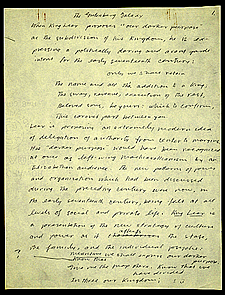 The Gutenberg Galaxy
When King Lear proposes "our darker purpose"
as the subdivision of his Kingdom, he is ex-
pressing a politically daring and avant garde
intent for the early seventeenth century:
only we still retain
The name and all the addition to a King;
The sway, revenue, execution of the rest,
Beloved sons, be yours: which to confirm,
This coronet part between you
Lear is proposing an extremely modern idea
of delegation of authority from center to margins.
His "darker purpose" would have been recognized
at once as left-wing machiavellianism by an
Elizabethan audience. The new patterns of power
and organization which had been discussed
during the preceding century were now, in
the early seventeenth century, being felt at all
levels of social and private life. King Lear is
a presentation of the new strategy of culture
and power as it the state,
the family, and the individual psyche:
meantime we shall express our darker
Give me the map there. Know that we
have divided
In three our Kingdom,